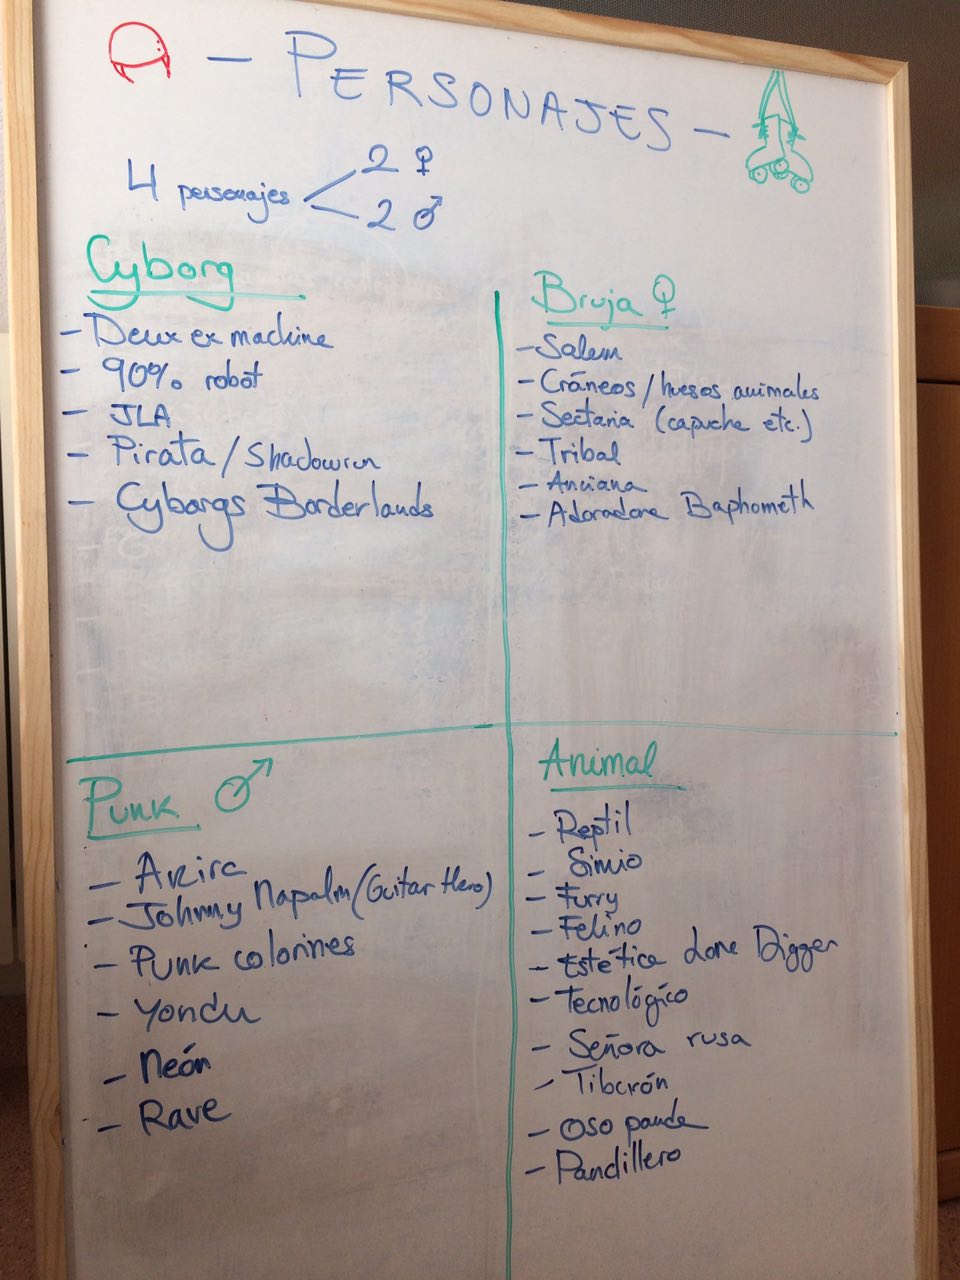 - PERSONAJES -
4 personajes
2 ♀
2 ♂
Cyborg
- Deux ex machine
- 90% robot
- JLA
- Pirata / Shadowrun
- Cyborgs Borderlands
Bruja ♀
- Salem
- Cráneos / huesos animales
- Sectaria (capucha etc.)
- Tribal
- Anciana
- Adoradora Baphometh
Punk ♂
- Akira
- Johnny Napalm (Guitar Hero)
- Punk colorines
- Yondu
- Neón
- Rave
Animal
- Reptil
- Simio
- Furry
- Felino
- Estética Lone Digger
- Tecnológico
- Señora rusa
- Tiburón
- Oso panda
- Pandillero